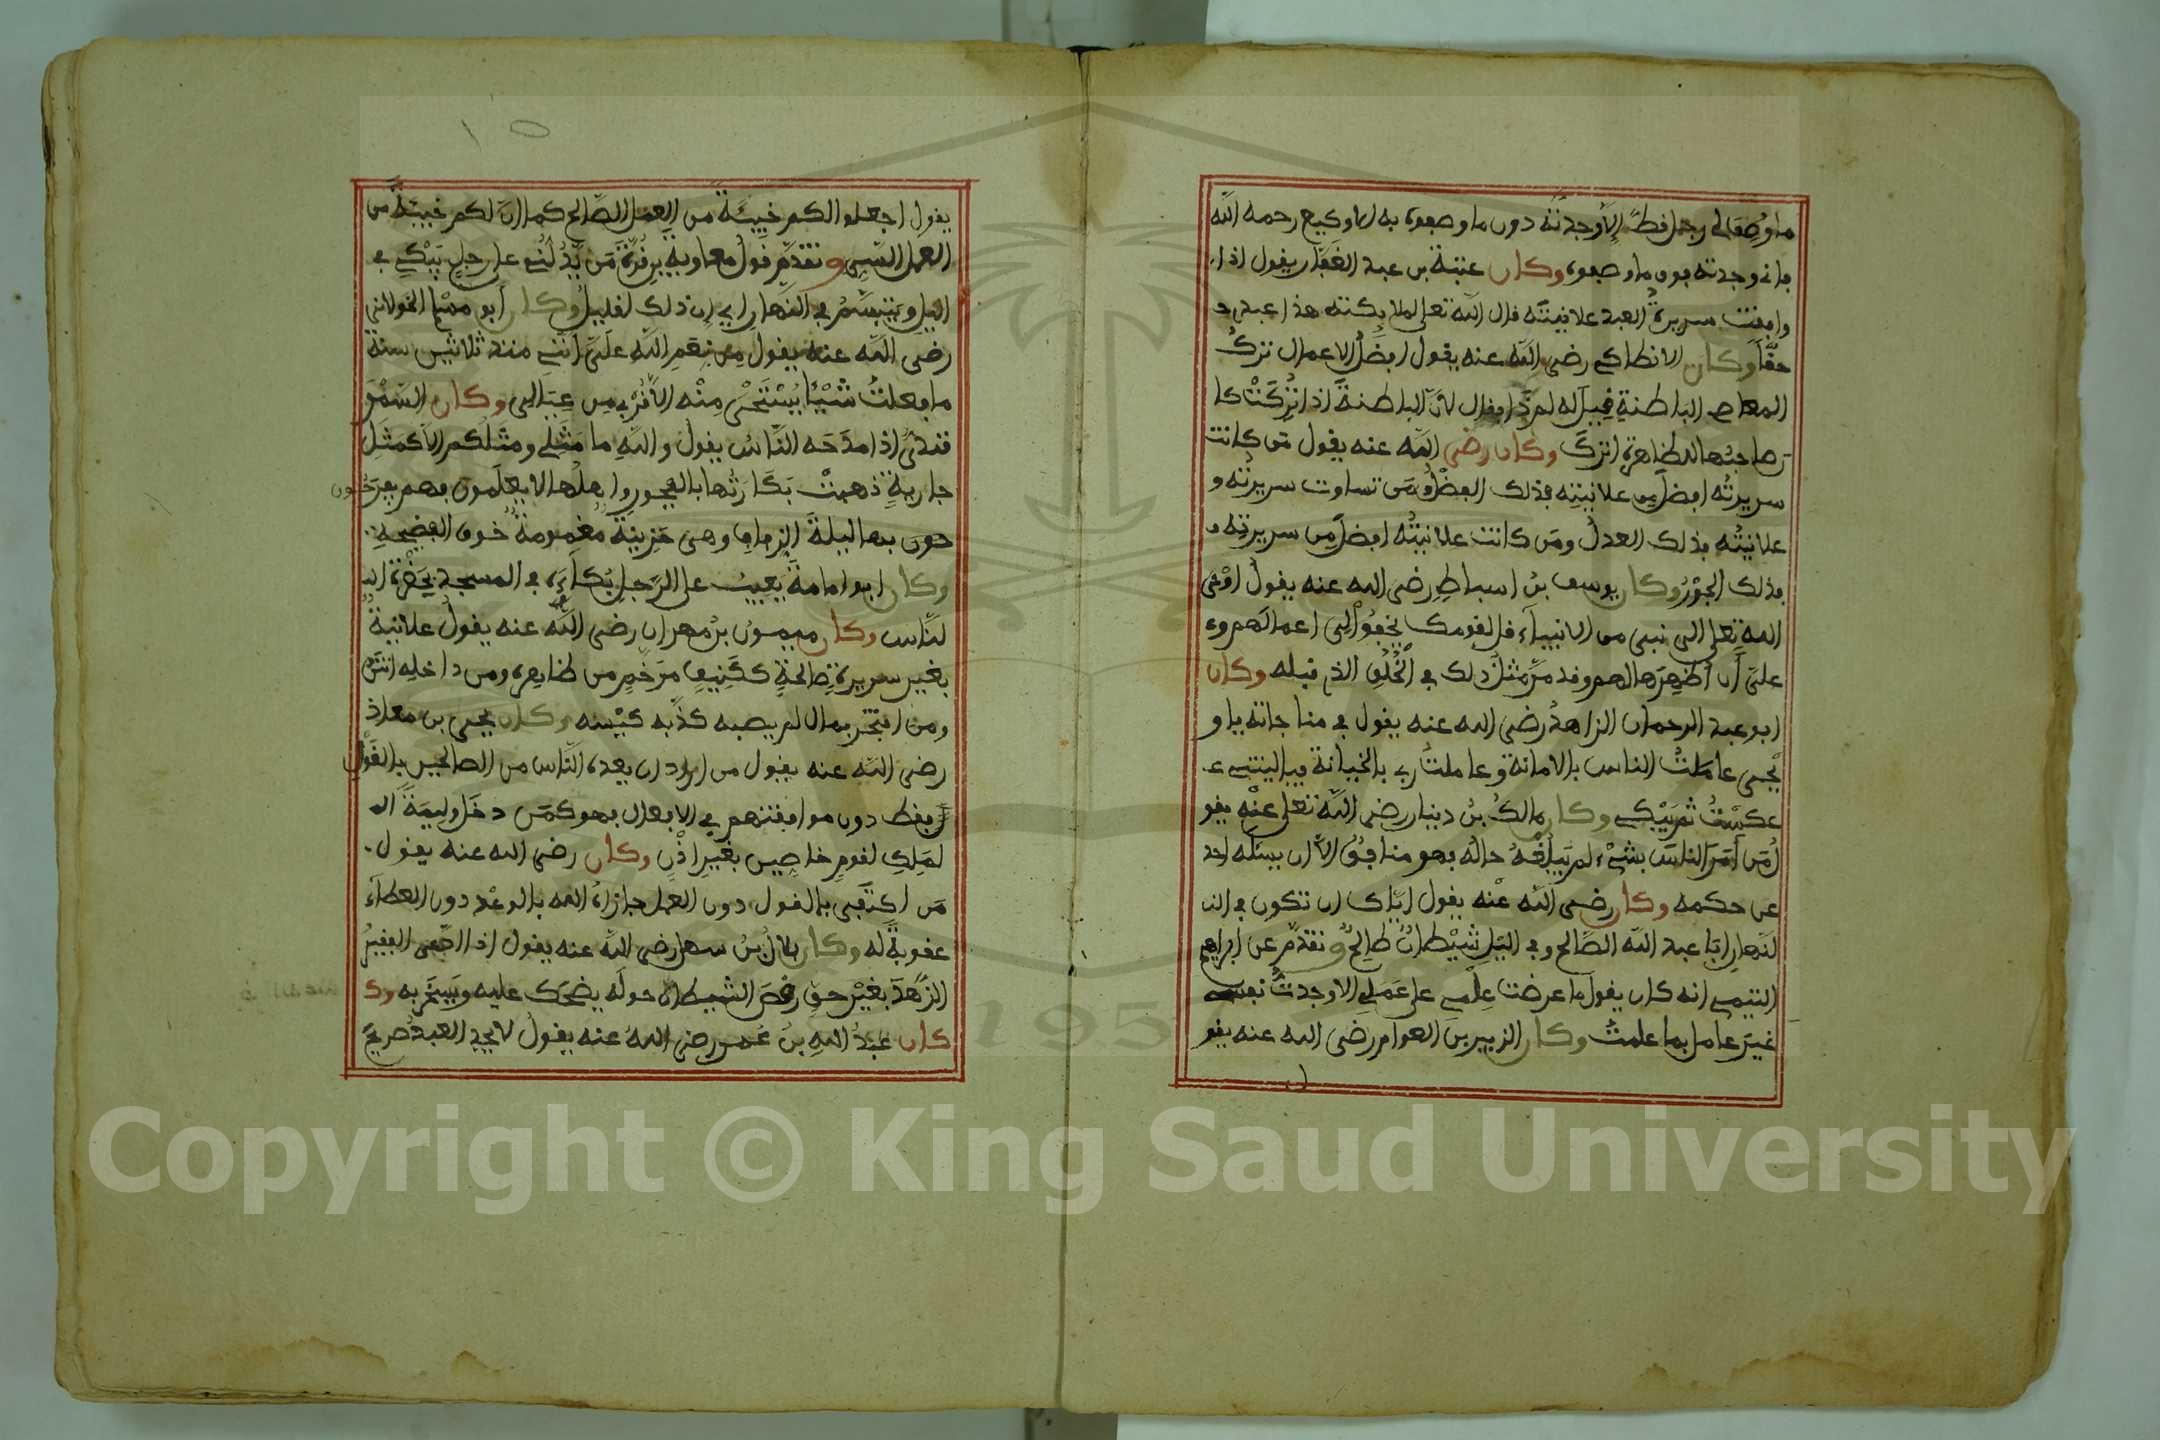 ما وصف لي رجل قط الا وجدته دون ما وصفوه به الا وكيع رحمه الله
فاني وجدته فوق ما وصفوه وكان عتبة بن عبد الغفار يقول اذا
وافقت سريرة العبد علانيته قال الله تعلى لملايكته هذا عبدي
حقا وكان الانطاكي رضي الله عنه يقول افضل الاعمال ترك
المعاصي الباطنة فقيل له لم ذا فقال لان الباطنة اذا تركت كا
ن صاحبها للظاهرة اترك وكان رضي الله عنه يقول من كانت
سريرته افضل من علانيته فذلك الفضل ومن تساوت سريرته و
علانيته فذلك العدل ومن كانت علانيته افضل من سريرته
فذلك الجور وكان يوسف بن اسباط رضي الله عنه يقول اوحى
الله تعلى الى نبي من الانبياء قل لقومك يخفوا لي اعمالهم و
علي ان اظهرها لهم وقد مر مثل ذلك في الخلق الذي قبله وكان
ابو عبد الرحمان الزاهد رضي الله عنه يقول في مناجاته يا و
يحي عاملت الناس بالامانة وعاملت ربي بالخيانة فياليتني
عكست ثم يبكي وكان مالك بن دينار رضي الله تعلى عنه يقو
ل من امر الناس بشيء لم يبلغه حاله فهو منافق الا ان يسئله احد
عن حكمه وكان رضي الله عنه يقول اياك ان تكون في الن
لنهار ابا عبد الله الصالح وفي الليل شيطان طالح وتقدم عن ابراهيم
التيمي انه كان يقول ما عرضت علمي على عملي الا وجدت نفسي
غير عامل بما علمت وكان الزبير بن العوام رضي الله عنه يقو
ل
١٥
يقول اجعلوا لكم خبيئة من العمل الصالح كما ان لكم خبيئة من
العمل السيئ وتقدم قول معاوية بن قرة من يدلني على رجل يبكي في
الليل ويتبسم في النهار اي ان ذلك لقليل وكان ابو مسلم الخولاني
رضي الله عنه يقول من نعم الله علي انني منذ ثلاثين سنة
ما فعلت شيئا يستحى منه الا قربي من عيالي وكان السمر
قندي اذا مدحه الناس يقول والله ما مثلي ومثلكم الا كمثل
جارية ذهبت بكارتها بالفجور واهلها لا يعلمون فهم يفرحون
حون بها ليلة الزفاف وهي حزينة مغمومة خوف الفضيحة
وكان ابو امامة يعيب على الرجل بكاءه في المسجد بحضرة ال
لناس وكان ميمون بن مهران رضي الله عنه يقول علانية
بغير سريرة صالحة ككنيف مزخرف من ظاهره ومن داخله انتن
ومن افتخر بمال لم يصبه كذبه كيسه وكان يحيى بن معاذ
رضي الله عنه يقول من اراد ان يعده الناس من الصالحين بالقول
فقط دون موافقتهم في الافعال فهو كمن دخل وليمة ال
لملك لقوم خاصين بغير اذن وكان رضي الله عنه يقول
من اكتفى بالقول دون العمل جازاه الله بالوعد دون العطاء
عقوبة له وكان بلال بن سعد رضي الله عنه يقول اذا ادعى الفقير
الزهد بغير حق رقص الشيطان حوله يضحك عليه ويسخر به وك
كان عبد الله بن عمر رضي الله عنه يقول لا يجد العبد صريح
Copyright © King Saud University
195